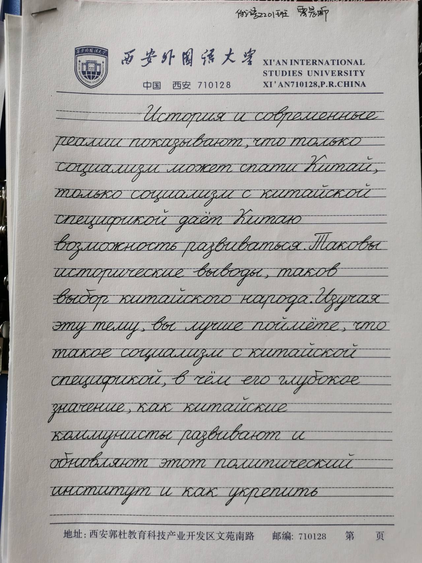 俄语2201班
西安外国语大学
XI'AN INTERNATIONAL
STUDIES UNIVERSITY
中国 西安 710128 XI'AN710128,P.R.CHINA
История и современные
реалии показывают, что только
социализм может спати Китай,
только социализм с китайской
спецификой даёт Китаю
возможность развиваться. Таковы
исторические выводы, таков
выбор китайского народа. Изучая
эту тему, вы лучше поймёте, что
такое социализм с китайской
спецификой, в чём его глубокое
значение, как китайские
коммунисты развивают и
обновляют этот политический
институт и как укрепить
地址: 西安郭杜教育科技产业开发区文苑南路 邮编: 710128 第 页